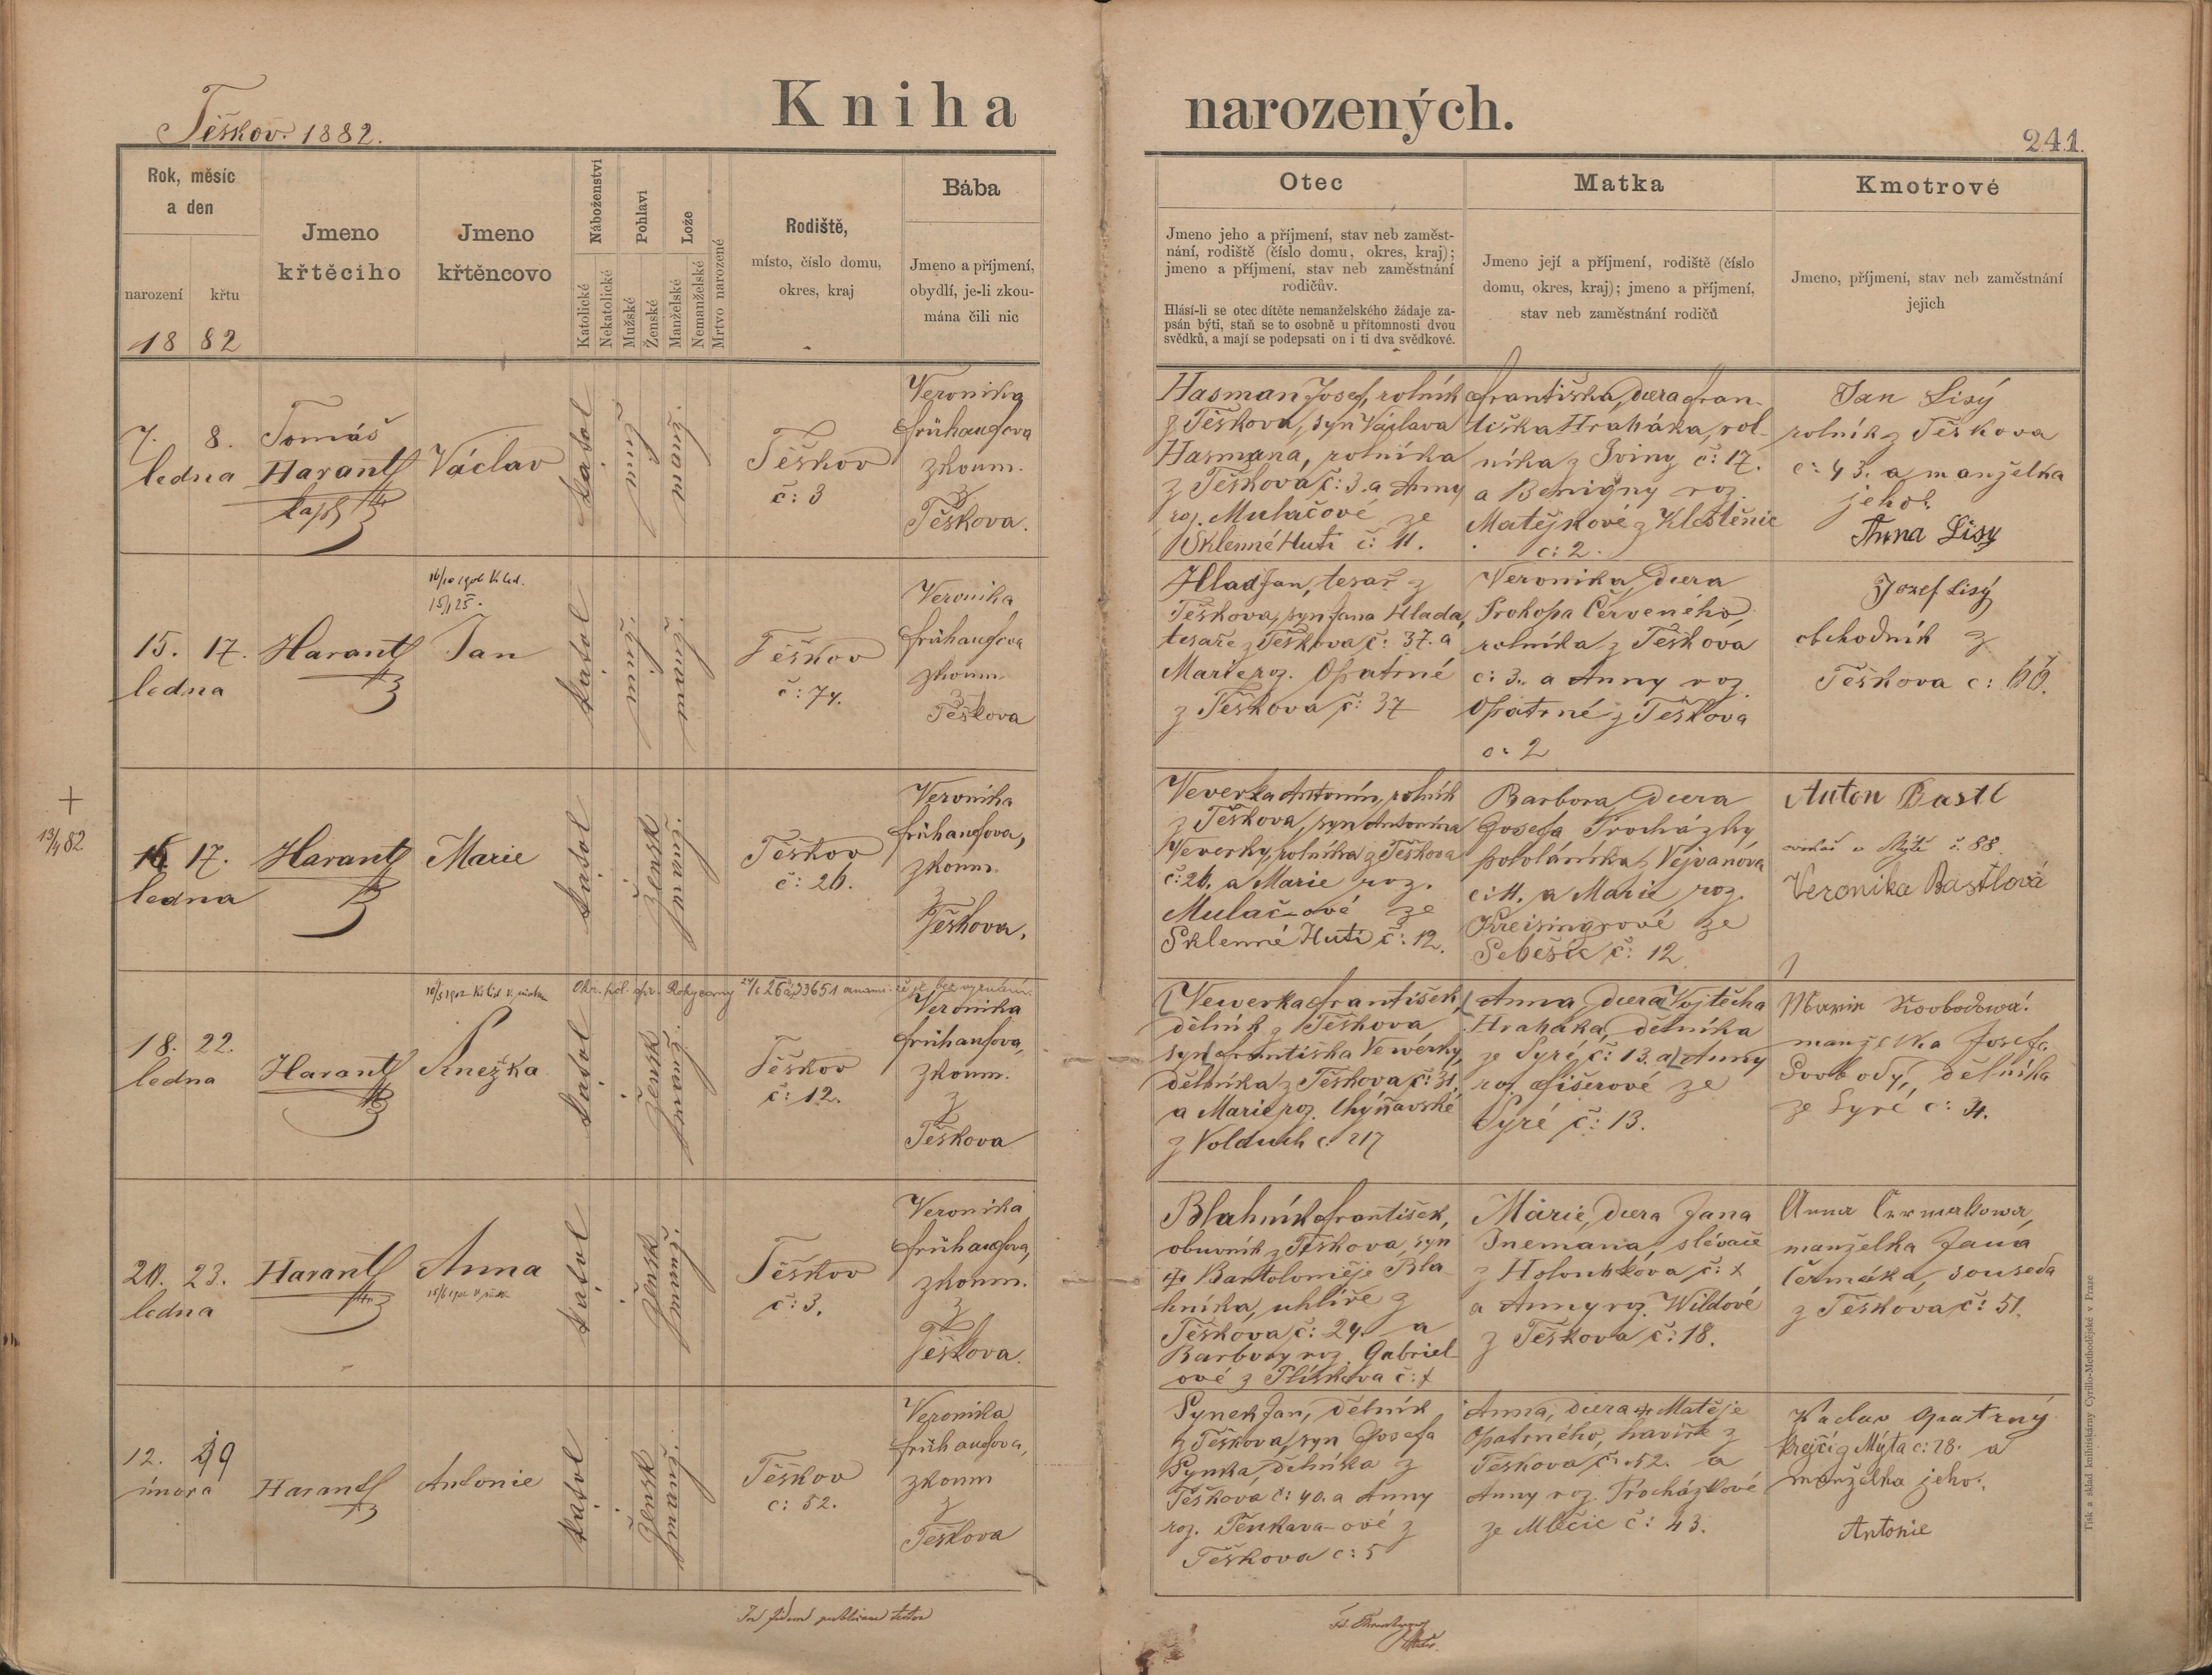 Těškov. 1882.
Kniha narozených.
241.
Rok, měsíc
a den
narození
křtu
18 82
Jmeno
křtěcího
Jmeno
křtěncovo
Náboženství
Katolické
Nekatolické
Pohlaví
Mužské
Ženské
Lože
Manželské
Nemanželské
Mrtvo narozené
Rodiště,
místo, číslo domu,
okres, kraj
Bába
Jmeno a příjmení,
obydlí, je-li zkou-
mána čili nic
Otec
Jmeno jeho a příjmení, stav neb zaměst-
nání, rodiště (číslo domu, okres, kraj);
jmeno a příjmení, stav neb zaměstnání
rodičův.
Hlásí-li se otec dítěte nemanželského žádaje za-
psán býti, staň se to osobně u přítomnosti dvou
svědků, a mají se podepsati on i ti dva svědkové.
Matka
Jmeno její a příjmení, rodiště (číslo
domu, okres, kraj); jmeno a příjmení,
stav neb zaměstnání rodičů
Kmotrové
Jmeno, příjmení, stav neb zaměstnání
jejich
7. 8.
ledna
Tomáš
Harant
kapl
Václav
katol
muž.
manž.
Těškov
č: 3
Veronika
Frühaufova
zkoum.
z
Těškova.
Hasman Josef, rolník
z Těškova, syn Václava
Hasmana, rolníka
z Těškova č: 3. a Anny
roz. Mulačové ze
Sklenné Huti č: 11.
Františka, dcera Fran-
tiška Hraháka, rol-
níka z Sviny č: 17.
a Benigny roz.
Matějkové z Kleštěnic
c: 2.
Jan Lisý
rolník z Těškova
c: 43. a manželka
jeho:
Anna Lisy
15. 17.
ledna
Harant
15/1 25.
Jan
katol
muž.
manž.
Těškov
č: 74.
Veronika
Frühaufova
zkoum.
z
Těškova
Hlad Jan, tesař z
Těškova, syn Jana Hlada,
tesaře z Těškova č: 37. a
Marie roz. Opatrné
z Těškova č: 37
Veronika, dcera
Prokopa Červeného,
rolníka z Těškova
c: 3. a Anny roz.
Opatrné z Těškova
c: 2
Jozef Lisý
obchodník z
Těškova c: 66.
+
13/4 82.
16 17.
ledna
Harant
Marie
katol
žensk
manž.
Těškov
č: 26.
Veronika
Frühaufova,
zkoum.
z
Těškova.
Veverka Antonín, rolník
z Těškova, syn Antonína
Veverky, rolníka z Těškova
č: 26. a Marie roz.
Mulač-ové ze
Sklenné Huti č: 12.
Barbora, dcera
Josefa Procházky
pololáníka z Vejvanova
c: 11. a Marie roz.
Kreisingrové ze
Seběsic č: 12
Anton Bastl
v Mýtě č. 88.
Veronika Bastlová
18. 22.
ledna
Harant
Anežka
katol
žensk
manž.
Těškov
č: 12.
Veronika
Frühaufova,
zkoum.
z
Těškova
Vewerka František,
dělník z Těškova,
syn Františka Vewerky,
dělníka z Těškova č: 31.
a Marie roz. Chýňavské
z Volduch c: 217
Anna, dcera Vojtěcha
Hraháka, dělníka
ze Syré, č: 13. a Anny
roz. Fišerové ze
Syré č: 13.
manželka Josefa
Svobody, dělníka
ze Syré c: 4.
20. 23.
ledna
Harant
Anna
katol
žensk
manž.
Těškov
č: 3.
Veronika
Frühaufova,
zkoum.
z
Těškova.
Blahník František,
obuvník z Těškova, syn
Bartoloměje Bla-
hníka, uhlíře z
Těškova č: 24. a
Barbory roz. Gabriel-
ové z Plískova č: x
Marie, dcera Jana
Inemana, slévače
z Holoubkova č: x
a Anny roz. Wildové
z Těškova č: 18.
Anna
manželka Jana
Čermáka, souseda
z Těškova č: 51.
12. 19
února
Harant
Antonie
katol
žensk
manž.
Těškov
c: 52.
Veronika
Frühaufova,
zkoum
z
Těškova
Synek Jan, dělník
z Těškova, syn Josefa
Synka, dělníka z
Těškova č: 40. a Anny
roz.
Těškova c: 5
Anna, dcera Matěje
Opatrného, havíře z
Těškova č: 52. a
Anny roz. Procházkové
ze Mlečic č: 43.
Václav Opatrný
krejčí z Mýta c: 28. a
manželka jeho:
Antonie
Tisk a sklad knihtiskárny Cyrillo-Methodějské v Praze